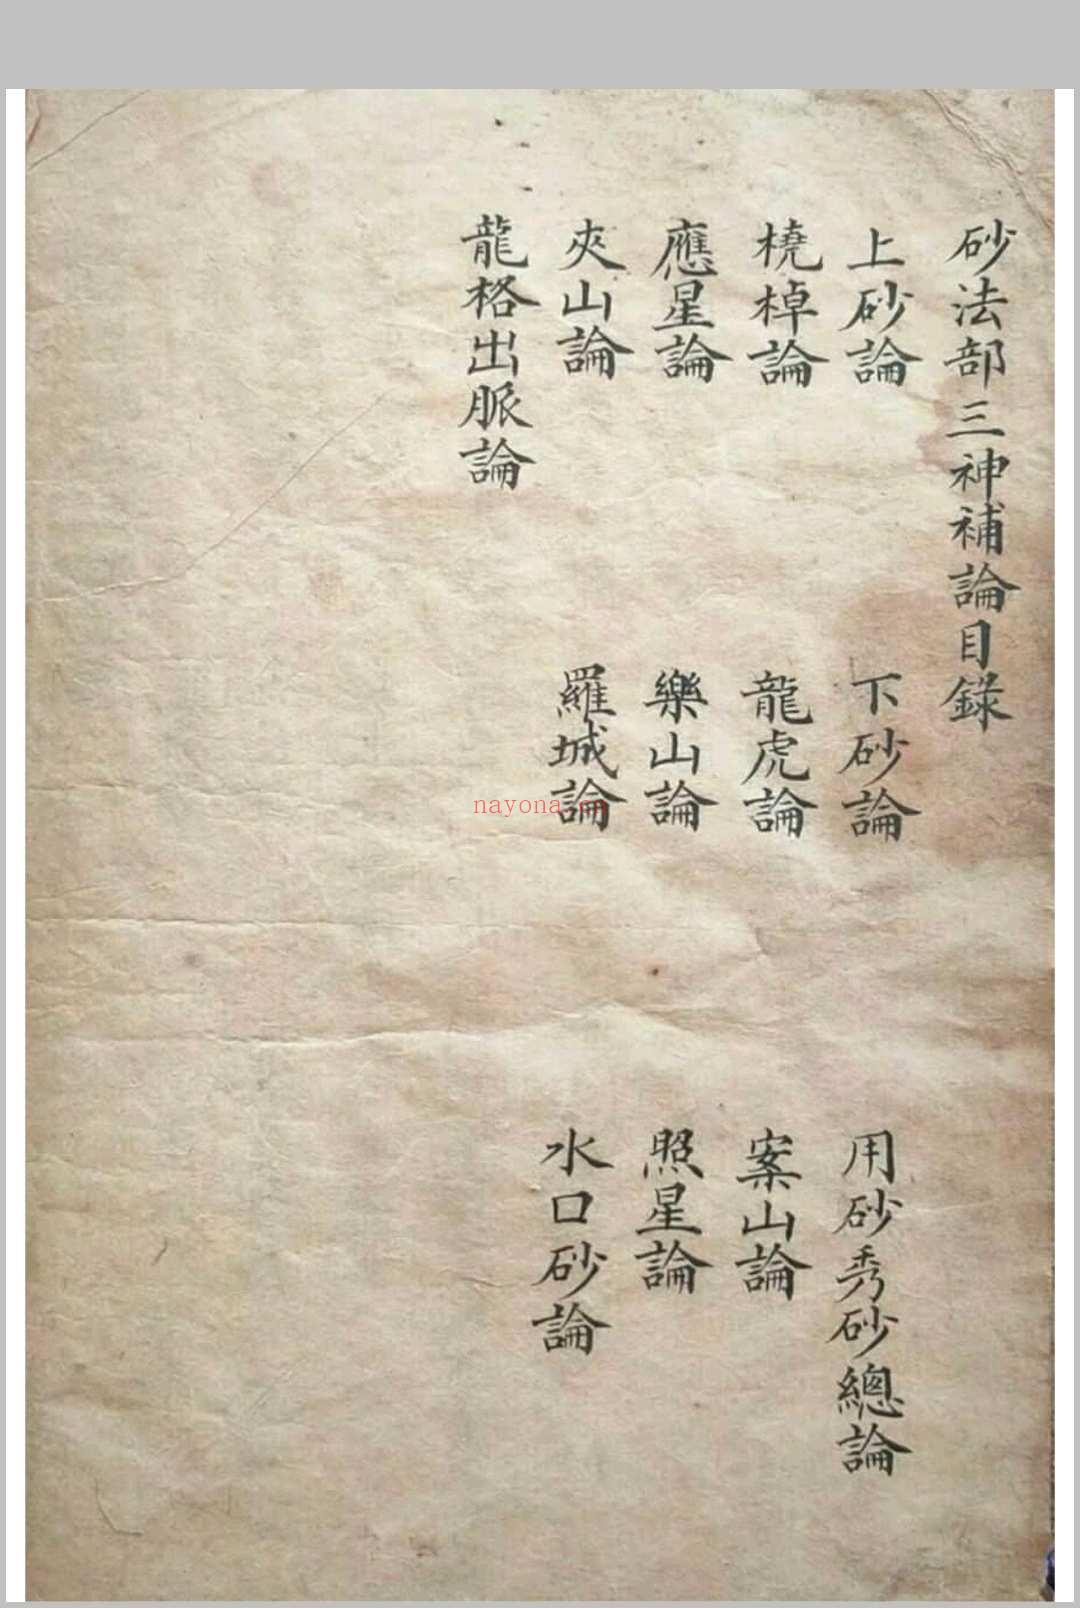 砂法部三神補論目錄
上砂論
下砂論
用砂秀砂總論
橈棹論
龍虎論
案山論
應星論
樂山論
照星論
夾山論
羅城論
水口砂論
龍格出脈論